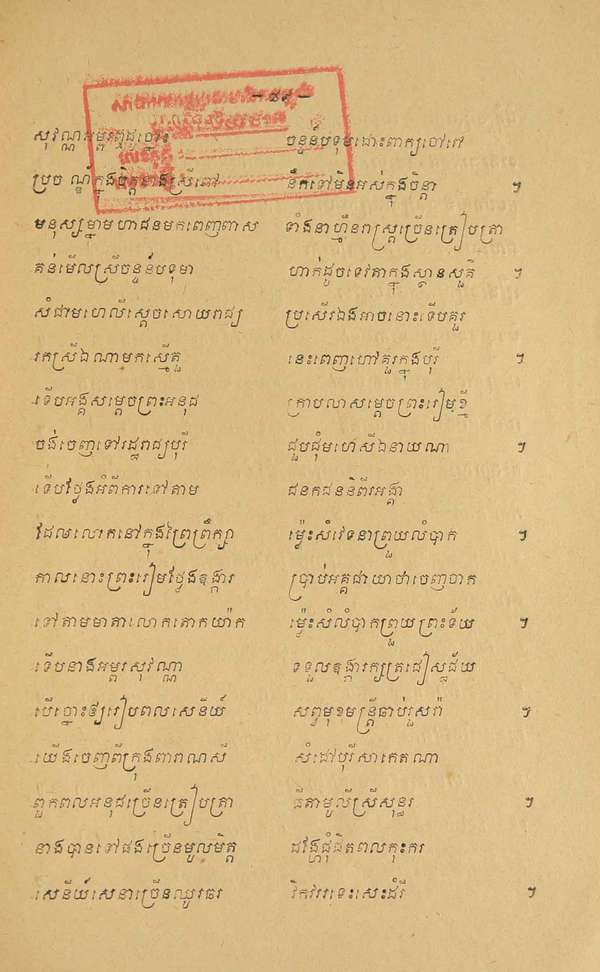 — ៥៩ —
សុវណ្ណអម្ពរតូងច្នោះ ចន្ទន៍បទុមដោះពាក្យចៅពៅ
ប្រច ណ្ឌ័ក្នុងចិត្តនាងស្រីពៅ នឹកទៅមិនអស់ក្នុងចិន្តា ។
មនុស្សម្នាមហាជនមកពេញពាស ទាំងនាហ្មឺនរាស្ត្រច្រើនត្រៀបត្រា
គន់មើលស្រីចន្ទន៍បទុមា ហាក់ដូចទេវតាក្នុងស្ថានសួគ៌ ។
សំជាមហេសីស្ដេចសោយរាជ្យ ប្រសើរឯងអាចនោះទើបគួរ
រកស្រីឯណាមកស្មើតួ នេះពេញហៅគួរក្នុងបុរី ។
ទើបអង្គសម្ដេចព្រះអនុជ ក្រាបលាសម្ដេចព្រះរៀមថ្មី
ចង់ចេញទៅរដ្ឋរាជ្យបុរី ជួបជុំមហេសីឯនាយណា ។
ទើបថ្លែងអំពីការទៅតាម ជនកជននីពីរអង្គា
ដែលលោកនៅក្នុងព្រៃព្រឹក្សា ម្ល៉េះសំវេទនាព្រួយលំបាក ។
កាលនោះព្រះរៀមថ្លែងតុង្ការ ប្រាប់អគ្គជាយាថាចេញចាក
ទៅតាមមាតាលោកតោកយ៉ាក ម្ល៉េះសំលំបាកព្រួយព្រះទ័យ ។
ទើបនាងអម្ពរសុវណ្ណា ទទួលតុង្ការក្សត្រជៀស្ដជ័យ
បើច្នោះឱ្យរៀបពលសេនីយ៍ សព្វមុខមន្ត្រីឆាប់រួសរ៉ា ។
យើងចេញពីក្រុងពារាណសី សំដៅបុរីសាកេតណា
ពួកពលអនុជច្រើនត្រៀបត្រា ធីតាមូលីស្រីសុន្ទរ ។
នាងបានទៅផងច្រើនមូលមិត្ត ដង្ហែជុំជិតពលកុះករ
សេនីយ៍សេនាច្រើនឈូរឆរ រិកវរទេះសេះដំរី ។